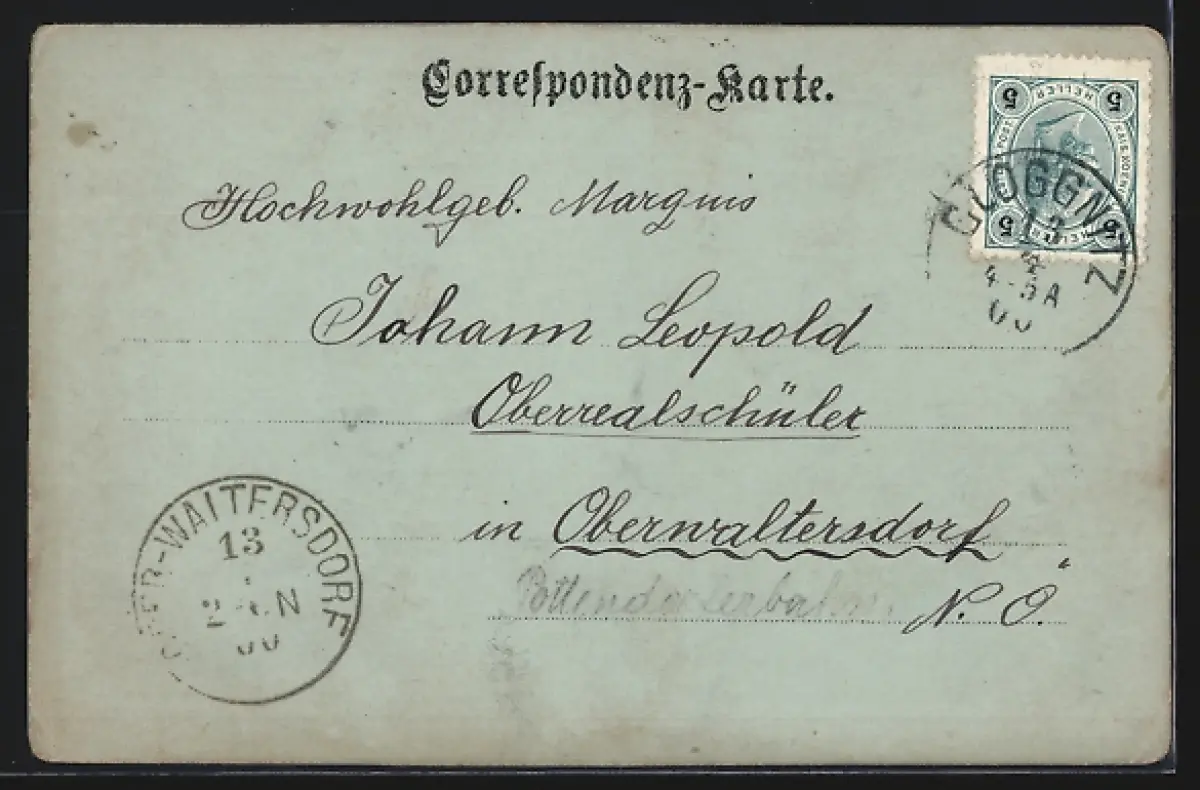 Correspondenz-Karte.
5 HELLER 5
GLOGGNITZ
13
4
4-5A
00
Hochwohlgeb. Marquis
Johann Leopold
Oberrealschüler
in Oberwaltersdorf
Pottendorferbahn
N. Ö.
OBER-WALTERSDORF
13
N
00